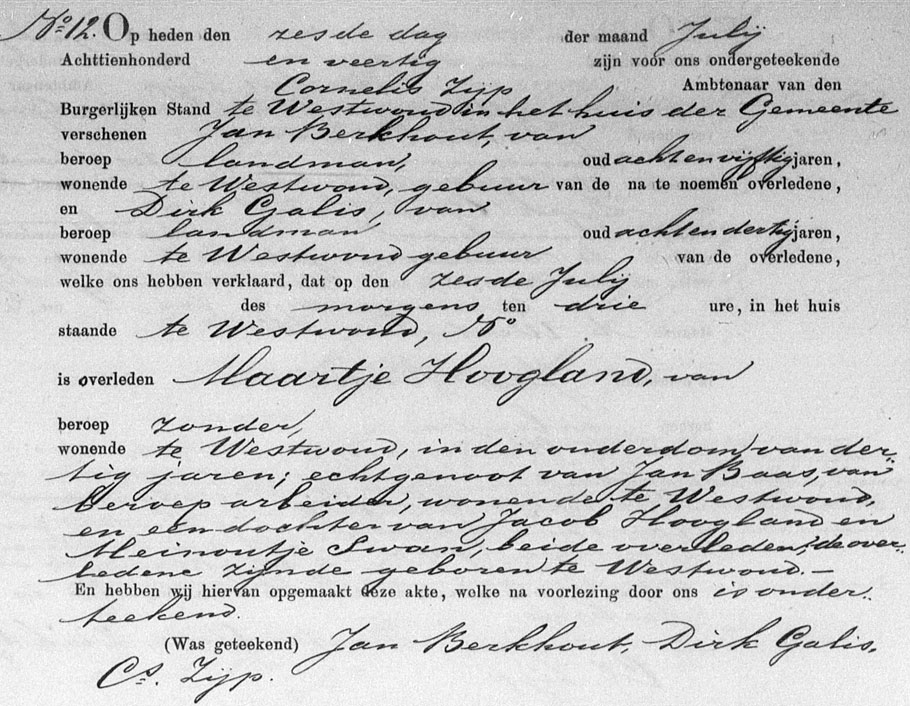 No. 12. Op heden den zesde dag der maand Julij
Achttienhonderd en veertig zijn voor ons ondergeteekende
Cornelis Zijp Ambtenaar van den
Burgerlijken Stand te Westwoud in het huis der Gemeente
verschenen Jan Berkhout, van
beroep landman, oud acht en vijftig jaren,
wonende te Westwoud, gebuur van de na te noemen overledene,
en Dirk Galis, van
beroep landman oud acht en dertig jaren,
wonende te Westwoud gebuur van de overledene,
welke ons hebben verklaard, dat op den zesde Julij
des morgens ten drie ure, in het huis
staande te Westwoud, No
is overleden Maartje Hoogland, van
beroep zonder,
wonende te Westwoud, in den ouderdom van der-
tig jaren; echtgenoot van Jan Baas, van
beroep arbeider, wonende te Westwoud,
en een dochter van Jacob Hoogland en
Meinoutje Swan, beide overleden; de over-
ledene zijnde geboren te Westwoud.—
En hebben wij hiervan opgemaakt deze akte, welke na voorlezing door ons is onder-
teekend.
(Was geteekend) Jan Berkhout, Dirk Galis,
Cs. Zijp.